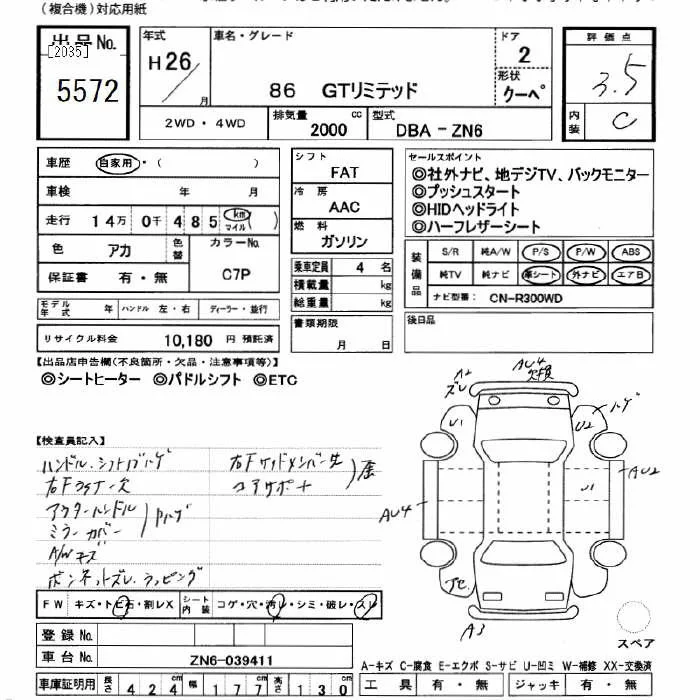 (複合機)対応用紙
出品No.
[2035]
5572
年式
H26/
月
車名・グレード
86 GTリミテッド
ドア
2
形状
クーペ
評価点
3.5
内装
C
2WD・4WD
排気量
2000 cc
型式
DBA-ZN6
車歴 自家用・( )
車検 年 月
走行 14万 0千485 km マイル( )
色 アカ 色替 カラーNo. C7P
保証書 有・無
シフト
FAT
冷房
AAC
燃料
ガソリン
乗車定員 4 名
積載量 kg
総重量 kg
書類期限
月 日
セールスポイント
◎社外ナビ、地デジTV、バックモニター
◎プッシュスタート
◎HIDヘッドライト
◎ハーフレザーシート
装備品
S/R 純A/W P/S P/W ABS
純TV 純ナビ 革シート 外ナビ エアB
ナビ型番: CN-R300WD
後日品
モデル年式 年 ハンドル 左・右 ディーラー・並行
リサイクル料金 10,180 円 預託済
【出品店申告欄(不良箇所・欠品・注意事項等)】
◎シートヒーター ◎パドルシフト ◎ETC
【検査員記入】
ハンドル.シフトノブハゲ
右Fライナー欠
アウターハンドル
ミラーカバー
Pハゲ
A/Wキズ
ボンネットズレ.ラッピング
右Fサイドメンバー先
コアサポート
歪
A2
ズレ
AU4
欠損
U1
U2
ハゲ
AU2
U1
AU4
A3
FW キズ・トビ石・割レX シート内装 コゲ・穴・汚レ・シミ・破レ・スレ
登録No.
車台No. ZN6-039411
車庫証明用 長さ 424 cm 幅 177 cm 高さ 130 cm
スペア
A-キズ C-腐食 E-エクボ S-サビ U-凹ミ W-補修 XX-交換済
工具 有・無 ジャッキ 有・無